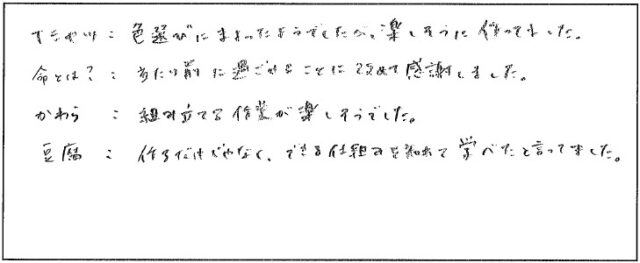 Tシャツ : 色選びにまよったようでしたが、楽しそうに作ってました。
命とは? : あたり前に過ごせることに改めて感謝しました。
かわら : 組み立てる作業が楽しそうでした。
豆腐 : 作るだけじゃなく、できる仕組みを初めて学べたと言ってました。